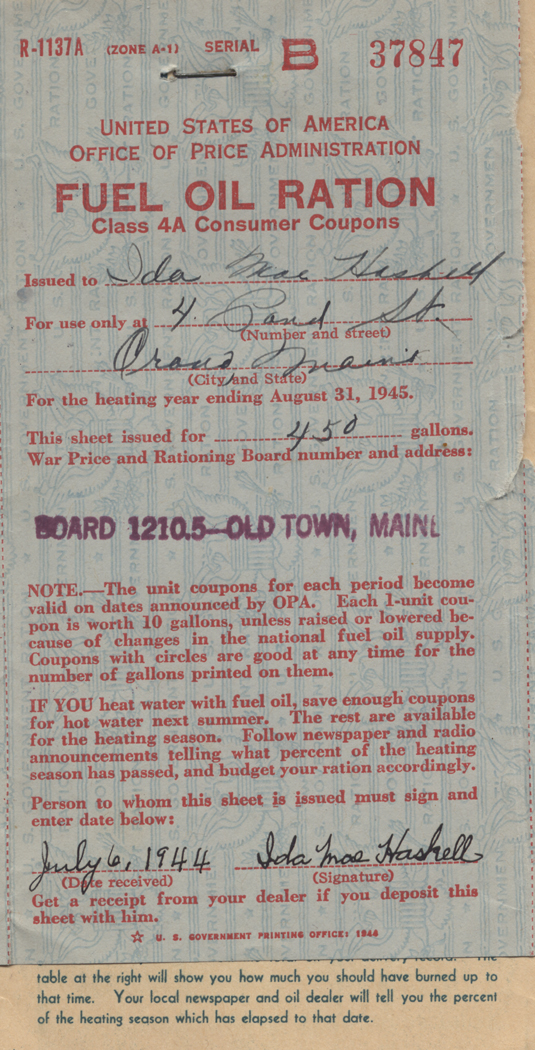 R-1137A (ZONE A-1) SERIAL B 37847
UNITED STATES OF AMERICA
OFFICE OF PRICE ADMINISTRATION
FUEL OIL RATION
Class 4A Consumer Coupons
Issued to Ida Mae Haskell
For use only at 4 Pond St.
(Number and street)
Orono, Maine
(City and State)
For the heating year ending August 31, 1945.
This sheet issued for 450 gallons.
War Price and Rationing Board number and address:
BOARD 1210.5—OLD TOWN, MAINE
NOTE.—The unit coupons for each period become
valid on dates announced by OPA. Each 1-unit cou-
pon is worth 10 gallons, unless raised or lowered be-
cause of changes in the national fuel oil supply.
Coupons with circles are good at any time for the
number of gallons printed on them.
IF YOU heat water with fuel oil, save enough coupons
for hot water next summer. The rest are available
for the heating season. Follow newspaper and radio
announcements telling what percent of the heating
season has passed, and budget your ration accordingly.
Person to whom this sheet is issued must sign and
enter date below:
July 6, 1944 Ida Mae Haskell
(Date received) (Signature)
Get a receipt from your dealer if you deposit this
sheet with him.
☆ U. S. GOVERNMENT PRINTING OFFICE: 1944
table at the right will show you how much you should have burned up to
that time. Your local newspaper and oil dealer will tell you the percent
of the heating season which has elapsed to that date.